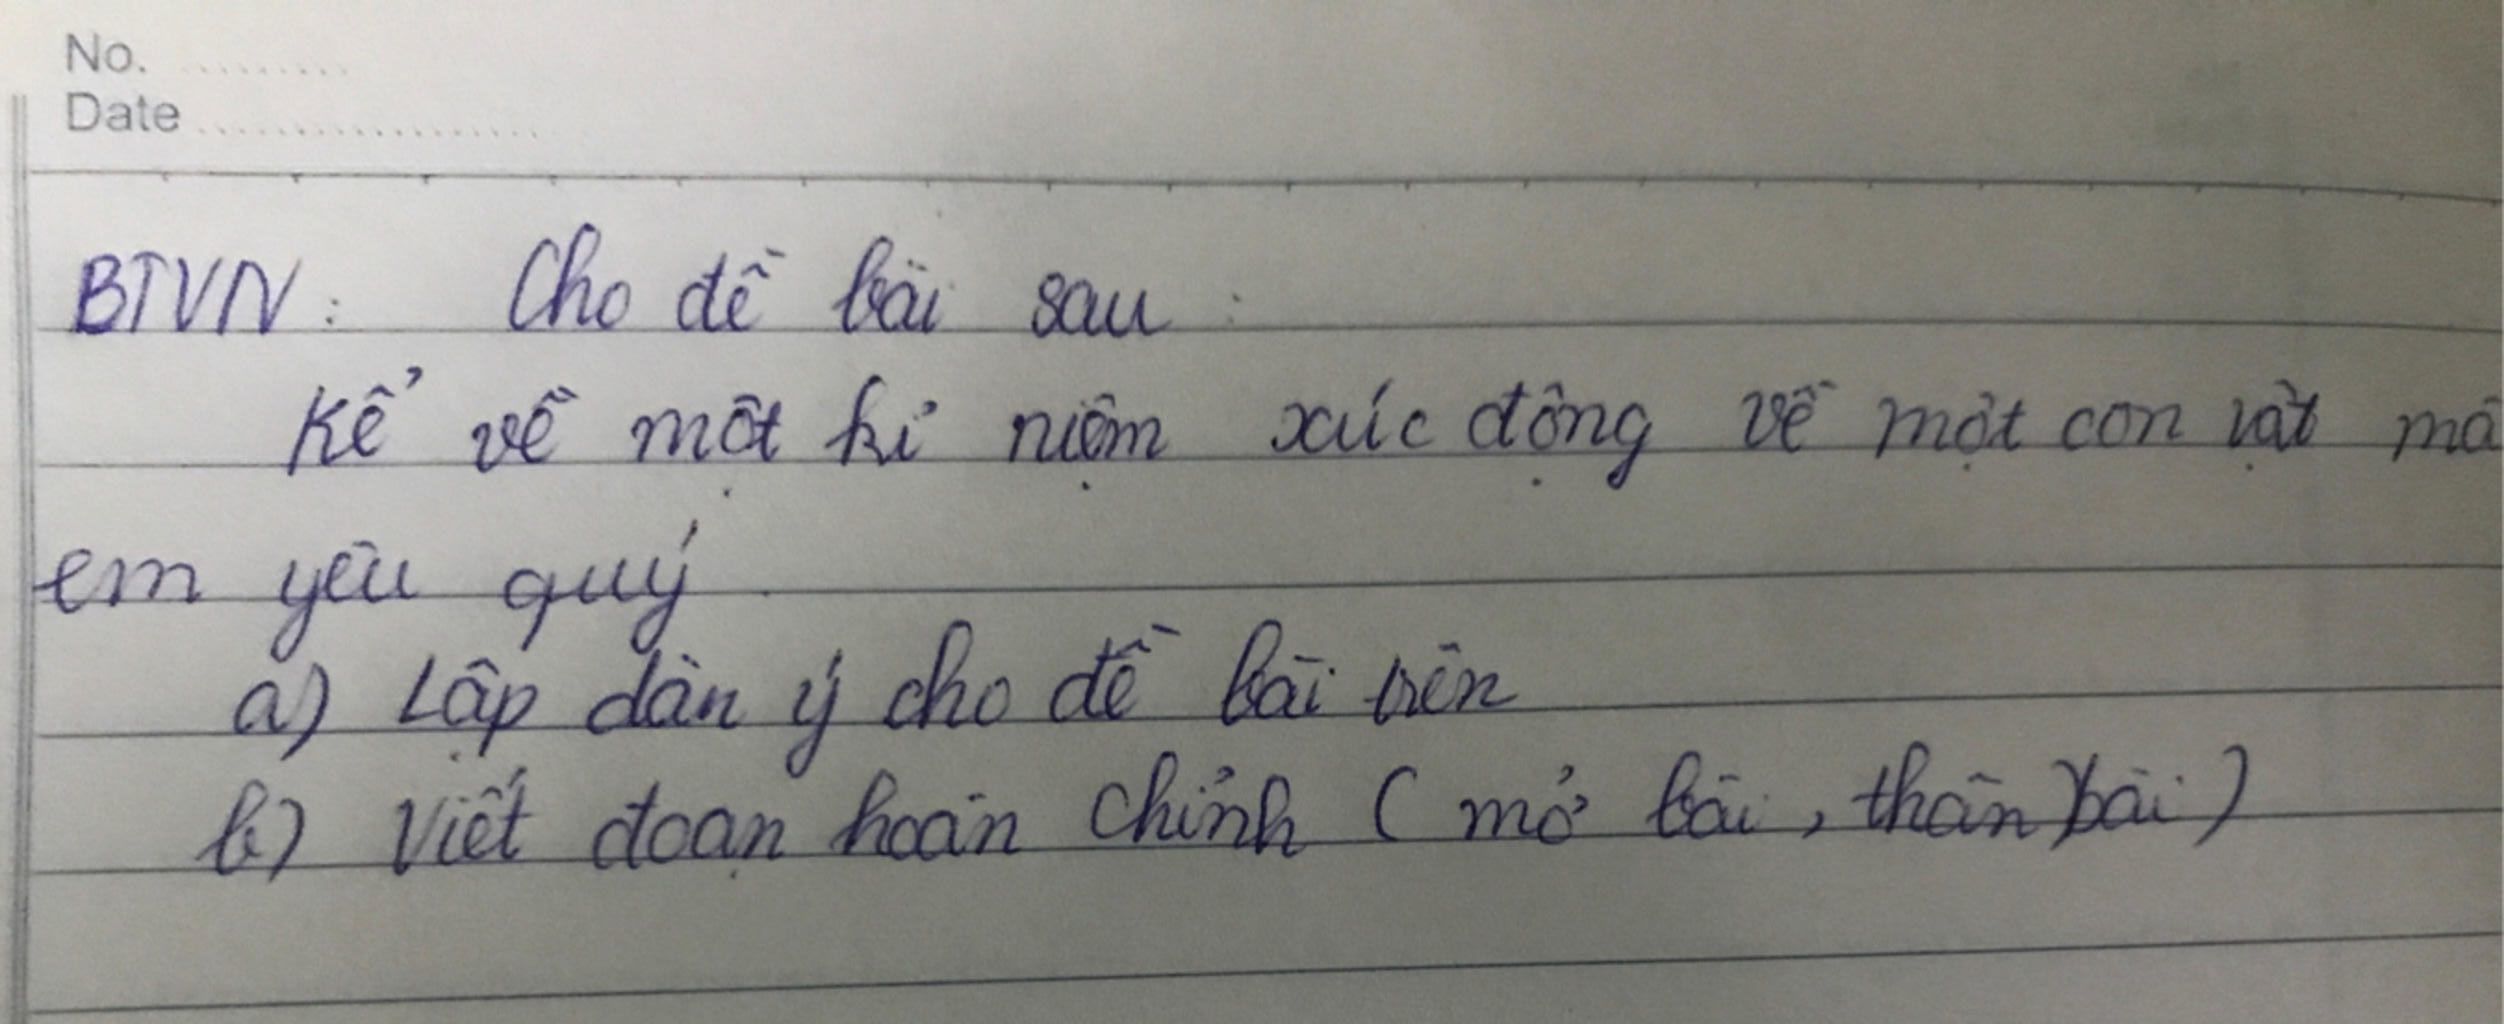 No. .........
Date ..................
BTVN: Cho đề bài sau:
Kể về một kỉ niệm xúc động về một con vật mà
em yêu quý.
a) Lập dàn ý cho đề bài trên
b) Viết đoạn hoàn chỉnh ( mở bài, thân bài)